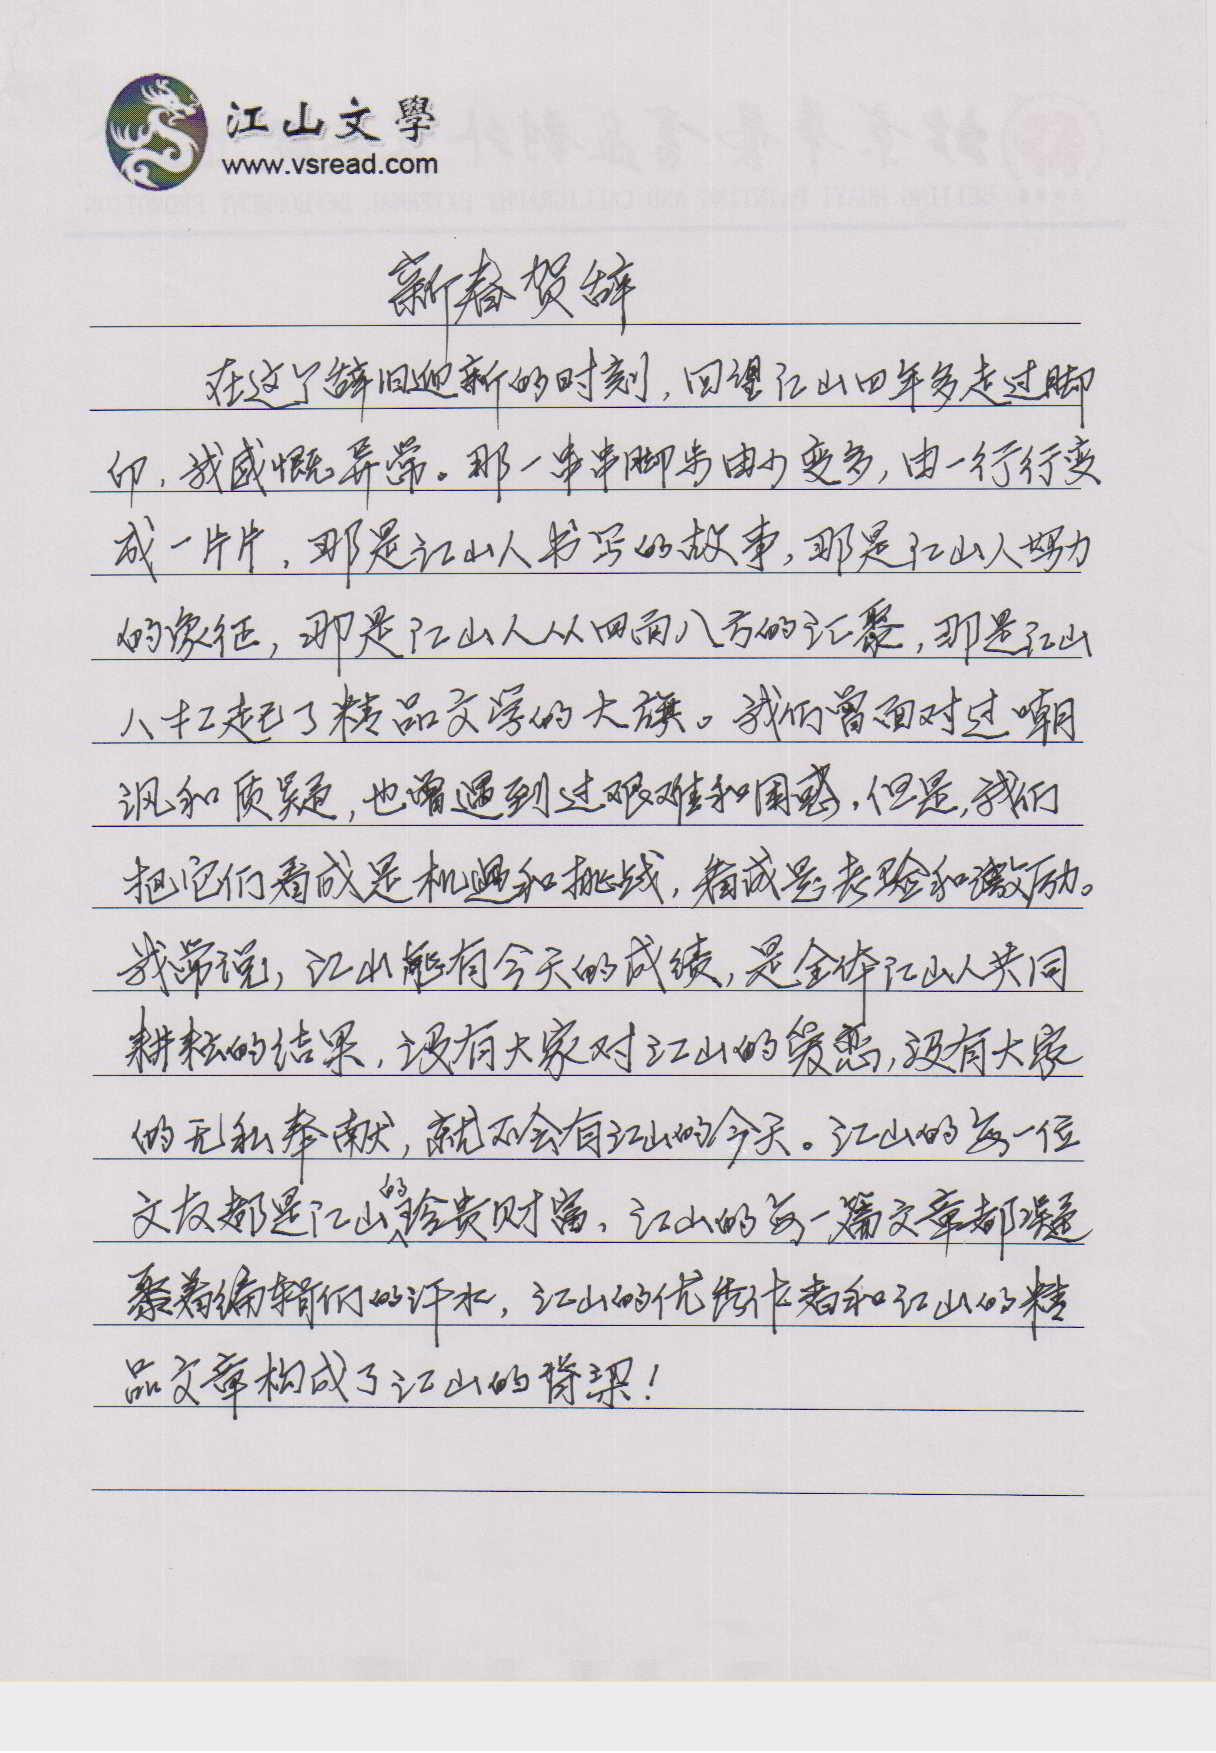 江山文學
www.vsread.com
新春贺辞
在这个辞旧迎新的时刻，回望江山四年多走过脚
印，我感慨异常。那一串串脚步由少变多，由一行行变
成一片片，那是江山人书写的故事，那是江山人努力
的象征，那是江山人从四面八方的汇聚，那是江山
人扛起了精品文学的大旗。我们曾面对过嘲
讽和质疑，也曾遇到过艰难和困惑，但是，我们
把它们看成是机遇和挑战，看成是考验和激励。
我常说，江山能有今天的成绩，是全体江山人共同
耕耘的结果，没有大家对江山的爱恋，没有大家
的无私奉献，就不会有江山的今天。江山的每一位
文友都是江山的珍贵财富，江山的每一篇文章都凝
聚着编辑们的汗水，江山的优秀作者和江山的精
品文章构成了江山的脊梁！